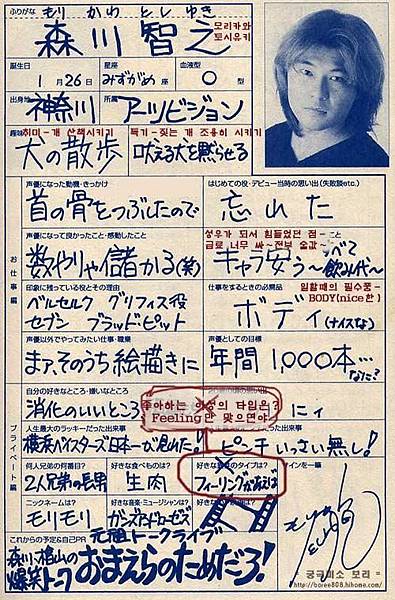 ふりがな もり かわ とし ゆき
森川智之
모리카와
토시유키
誕生日 1月26日
星座 みずがめ座
血液型 O型
出身地 神奈川
所属 アーツビジョン
趣味 취미-개 산책시키기
특기-짖는 개 조용히 시키기
犬の散歩
吠える犬を黙らせる
お仕事編
声優になった動機・きっかけ
首の骨をつぶしたので
はじめての役・デビュー当時の思い出(失敗談etc.)
忘れた
声優になって良かったこと・感動したこと
数やりゃ儲かる(笑)
성우가 되서 힘들었던 점-
금료 너무 싸~전부 술값
キャラ安う~すべて飲み代~
印象に残っている役とその理由
ベルセルク グリフィス役
セブン ブラッド・ピット
仕事をするときの必需品
일할때의 필수품-
BODY(nice한)
ボディ(ナイスな)
声優以外でやってみたい仕事・職業
まァ、そのうち絵描きに
声優としての目標
年間1,000本…なにが?
プライベート編
自分の好きなところ・嫌いなところ
消化のいいところ
좋아하는 이성의 타입은?
Feeling만 맞으면야
人生最大のラッキーだった出来事
横浜ベイスターズ日本一が見れた!
だった出来事
ピンチいっさい無し!
何人兄弟の何番目?
2人兄弟の長男
好きな食べものは?
生肉
タイプは?
フィーリングがあえば
サインを一筆
ニックネームは?
モリモリ
好きな音楽・ミュージシャンは?
ガンズアンドローゼズ
これからの予定&自己PR
元祖トークライブ
森川、檜山の爆笑トーク
おまえらのためだろ!
- 궁극미소 모리 -
http://boree808.hihome.com/